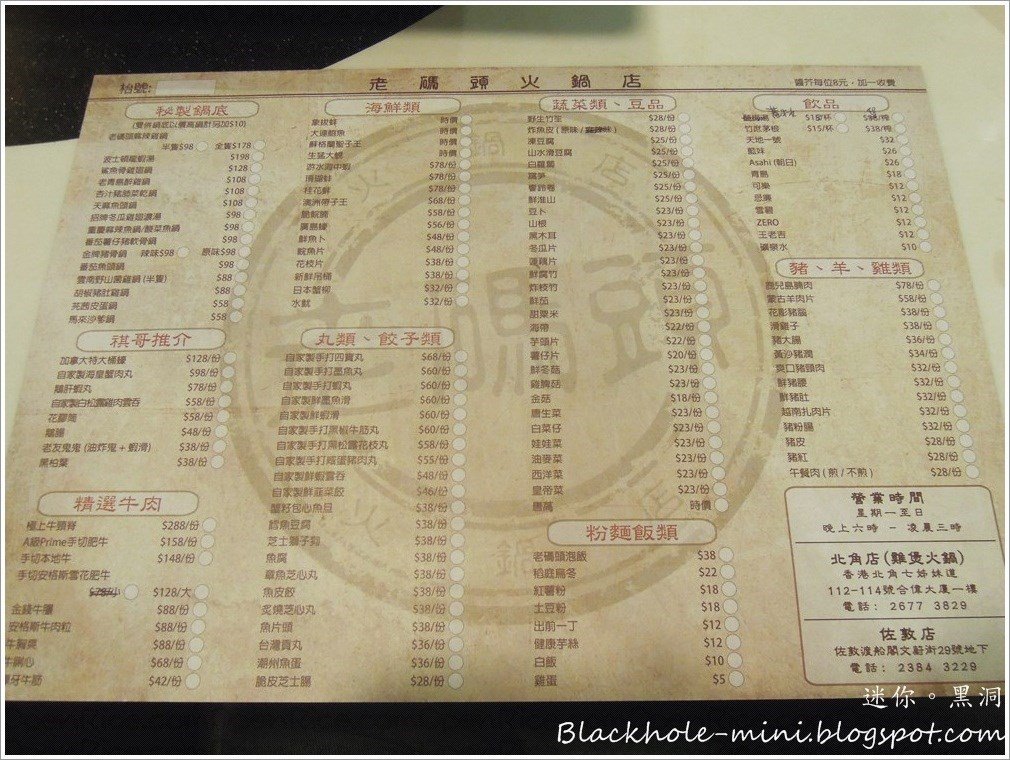 枱號:
老碼頭火鍋店
醬芥每位8元，加一收費
秘製鍋底
(雙併鍋底以價高鍋計另加$10)
老碼頭麻辣雞鍋
半隻$98 全隻$178
波士頓龍蝦湯 $198
鯊魚骨雞翅鍋 $128
老青島醉雞鍋 $108
杏汁豬肺菜乾鍋 $108
天麻魚頭鍋 $108
招牌冬瓜雞翅濃湯 $98
重慶麻辣魚鍋/酸菜魚鍋 $98
番茄薯仔豬軟骨鍋 $98
金牌豬骨鍋 辣味$98 原味$98
番茄魚頭鍋 $98
雲南野山菌雞鍋 (半隻) $88
胡椒豬肚雞鍋 $88
芫茜皮蛋鍋 $58
馬來沙爹鍋 $58
祺哥推介
加拿大特大桶蠔 $128/份
自家製海皇蟹肉丸 $98/份
鵝肝蝦丸 $78/份
自家製白松露雞肉雲吞 $58/份
花膠筒 $58/份
鵝腸 $48/份
老友鬼鬼 (油炸鬼 + 蝦滑) $38/份
黑柏葉 $38/份
精選牛肉
極上牛頸脊 $288/份
A級Prime手切肥牛 $158/份
手切本地牛 $148/份
手切安格斯雪花肥牛
$78/小 $128/大
金錢牛𦟌 $88/份
安格斯牛肉粒 $88/份
牛胸爽 $88/份
牛脷心 $68/份
牛筋 $42/份
海鮮類
象拔蚌 時價
大連鮑魚 時價
蘇格蘭聖子王 時價
生猛大蜆 時價
游水海中蝦 $78/份
珊瑚蚌 $78/份
桂花蚌 $78/份
澳洲帶子王 $68/份
脆鯇腩 $58/份
廣島蠔 $56/份
鮮魚卜 $48/份
鯇魚片 $48/份
花枝片 $38/份
新鮮吊桶 $38/份
日本蟹柳 $32/份
水魷 $32/份
丸類、餃子類
自家製手打四寶丸 $68/份
自家製手打墨魚丸 $60/份
自家製手打蝦丸 $60/份
自家製鮮墨魚滑 $60/份
自家製鮮蝦滑 $60/份
自家製手打黑椒牛筋丸 $60/份
自家製手打黑松露花枝丸 $58/份
自家製手打咸蛋豬肉丸 $55/份
自家製鮮蝦雲吞 $48/份
自家製鮮韮菜餃 $46/份
蟹籽包心魚旦 $38/份
鱈魚豆腐 $38/份
芝士獅子狗 $38/份
魚腐 $38/份
章魚芝心丸 $38/份
魚皮餃 $38/份
炙燒芝心丸 $38/份
魚片頭 $38/份
台灣貢丸 $36/份
潮州魚蛋 $36/份
脆皮芝士腸 $28/份
蔬菜類、豆品
野生竹笙 $28/份
炸魚皮 (原味 / 麻辣味) $28/份
凍豆腐 $25/份
山水滑豆腐 $25/份
白蘿蔔 $25/份
萵笋 $25/份
響鈴卷 $25/份
鮮淮山 $25/份
豆卜 $23/份
山根 $23/份
黑木耳 $23/份
冬瓜片 $23/份
蓮藕片 $23/份
鮮腐竹 $23/份
炸枝竹 $23/份
鮮茄 $23/份
甜粟米 $23/份
海帶 $22/份
芋頭片 $22/份
薯仔片 $20/份
鮮冬菇 $23/份
雞髀菇 $23/份
金菇 $18/份
唐生菜 $23/份
白菜仔 $23/份
娃娃菜 $23/份
油麥菜 $23/份
西洋菜 $23/份
皇帝菜 $23/份
唐蒿 時價
粉麵飯類
老碼頭泡飯 $38
稻庭烏冬 $22
紅薯粉 $18
土豆粉 $18
出前一丁 $12
健康芋絲 $12
白飯 $10
雞蛋 $5
飲品
酸梅湯 $18/杯 $38/樽
竹庶茅根 $15/杯 $38/樽
天地一號 $32
藍妹 $26
Asahi (朝日) $26
青島 $18
可樂 $12
忌廉 $12
雪碧 $12
ZERO $12
王老吉 $12
礦泉水 $10
豬、羊、雞類
鹿兒島腩肉 $78/份
蒙古羊肉片 $58/份
花膨豬腦 $38/份
滑雞子 $38/份
豬大腸 $36/份
黃沙豬潤 $34/份
爽口豬頸肉 $32/份
鮮豬腰 $32/份
鮮豬肚 $32/份
越南扎肉片 $32/份
豬粉腸 $32/份
豬皮 $28/份
豬紅 $28/份
午餐肉 ( 煎 / 不煎 ) $28/份
營業時間
星期一至日
晚上六時 - 凌晨三時
北角店(雞煲火鍋)
香港北角七姊妹道
112-114號合偉大廈一樓
電話: 2677 3829
佐敦店
佐敦渡船閣文蔚街29號地下
電話: 2384 3229
迷你。黑洞
Blackhole-mini.blogspot.com